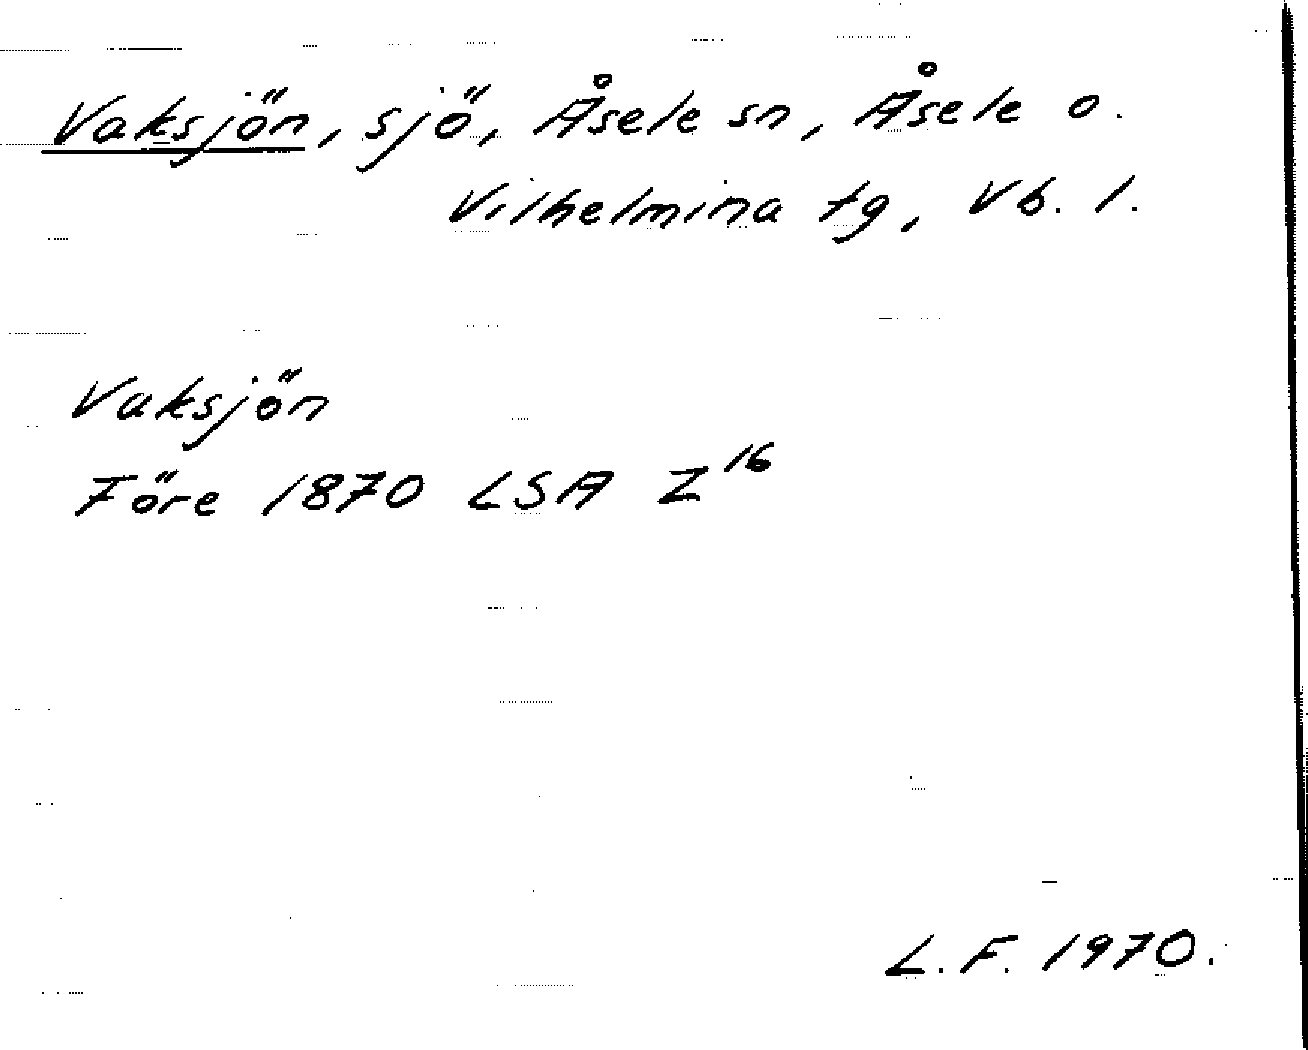 Vaksjön, sjö, Åsele sn, Åsele o.
Vilhelmina tg, Vb. l.
Vaksjön
Före 1870 LSA Z16
L.F. 1970.